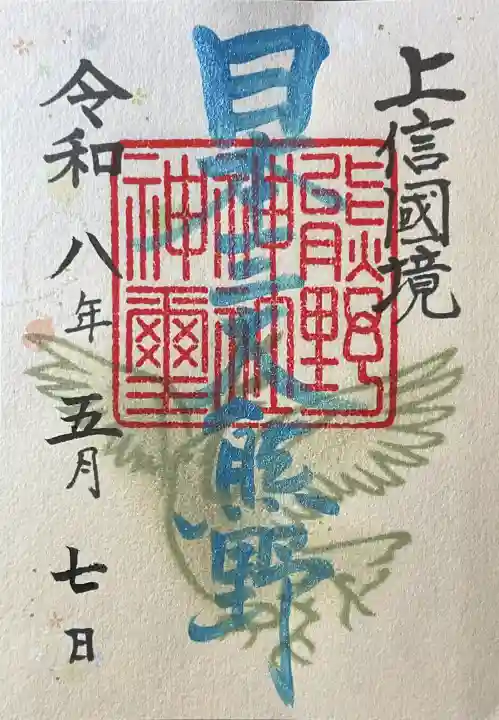 上信國境
日本三大熊野
熊野
神社
神璽
令和八年五月七日